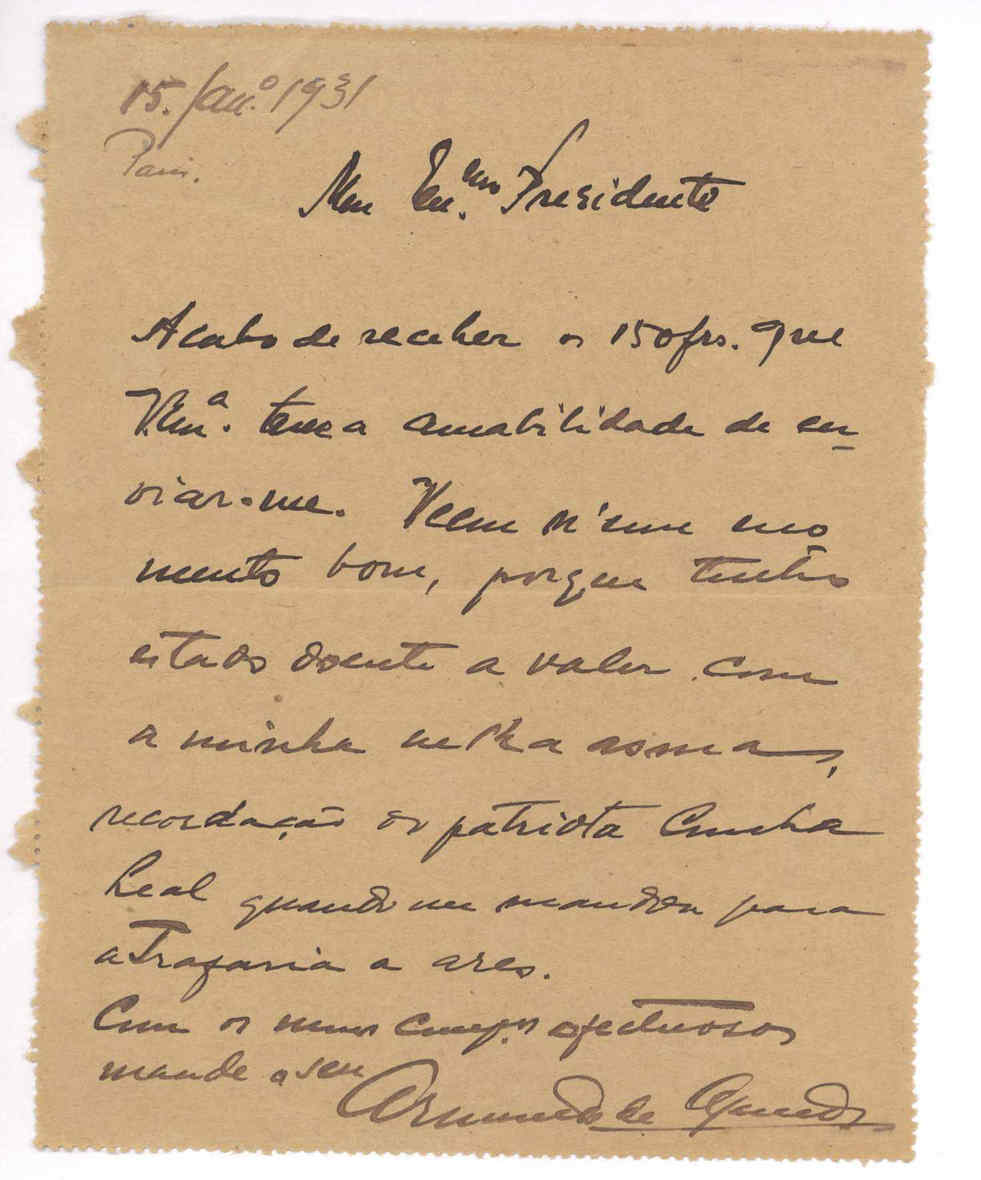 15. Jan.º 1931
Paris.
Meu Exmo Presidente
Acabo de receber os 150 frs. que
V. Exª. teve a amabilidade de en-
viar-me. Veem n'um mo
mento bom, porque tenho
estado doente a valer com
a minha velha asma,
recordação do patriota Cunha
Leal quando me mandou para
a Trafaria a ares.
Com os meus cumptos afectuosos
mande o seu
Armando de